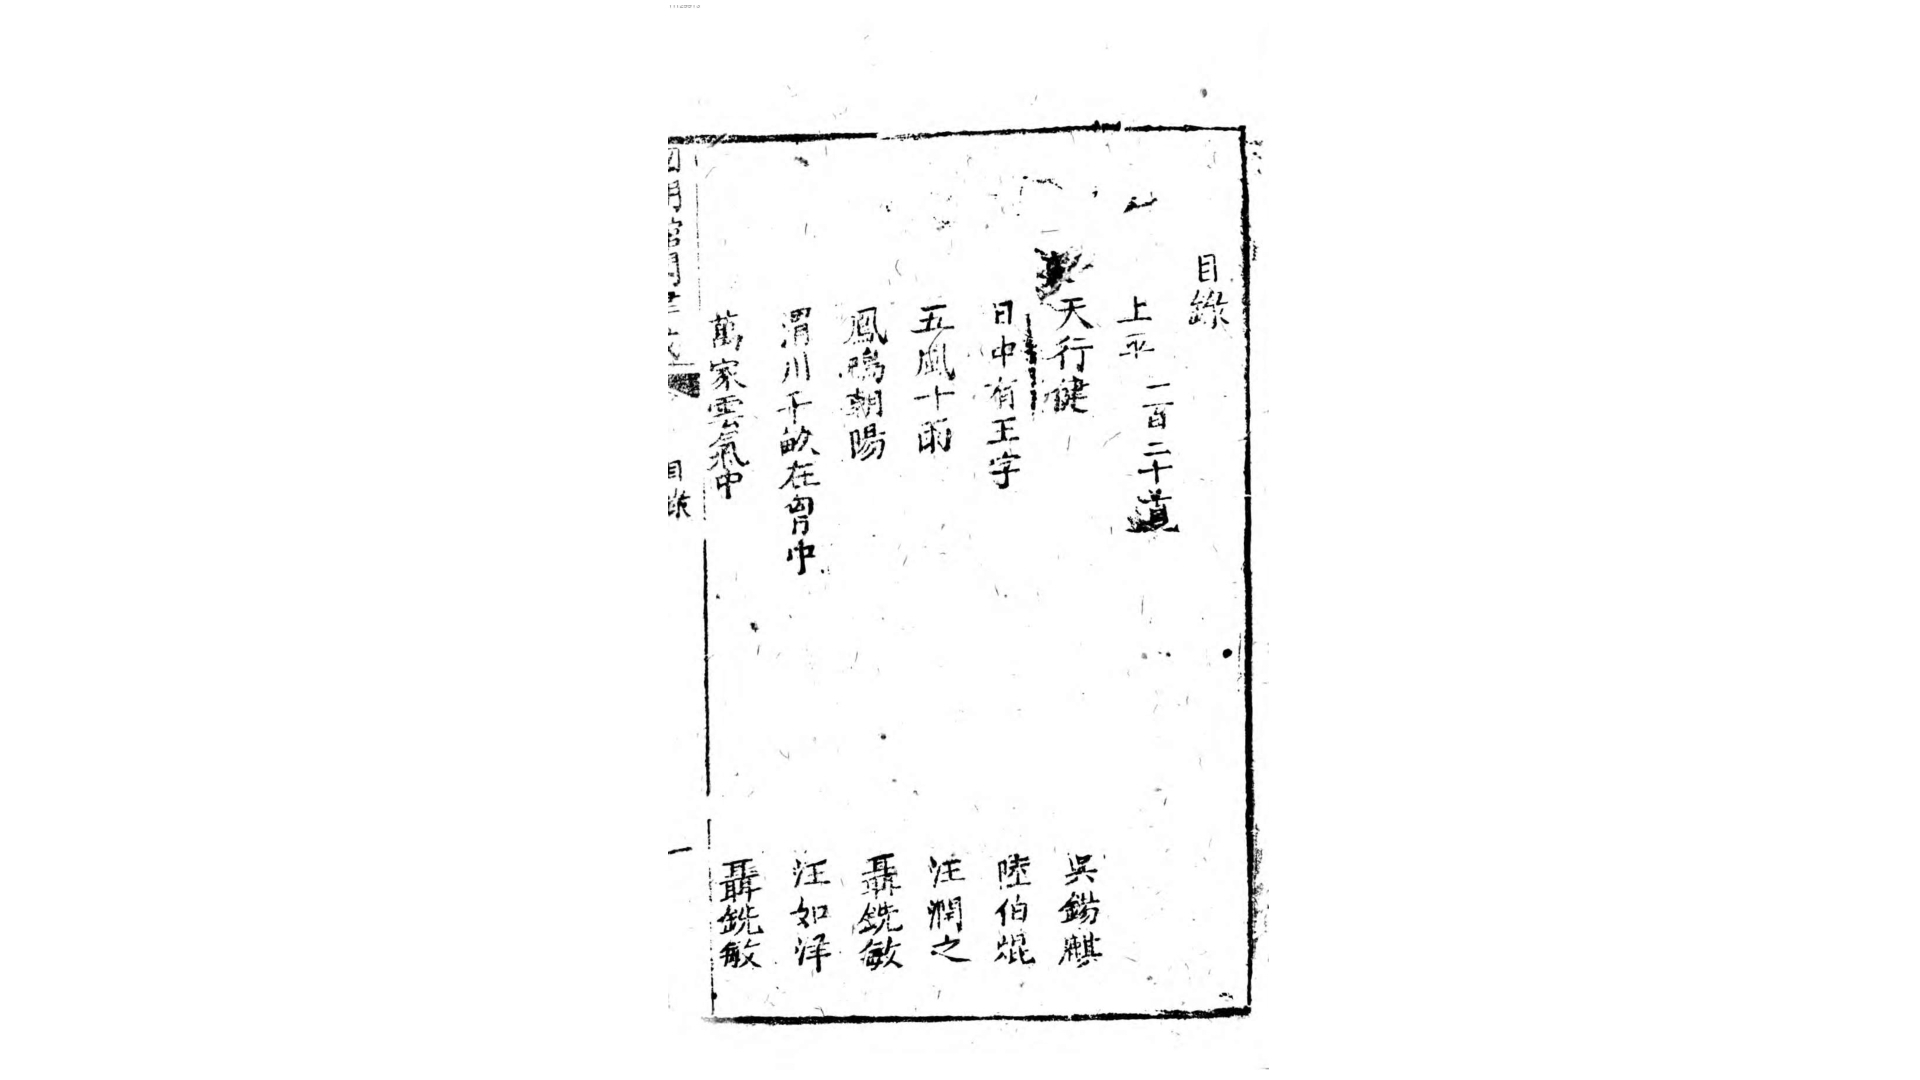 目錄
上平 一百二十道
天行健 吳錫麒
日中有王字 陸伯焜
五風十雨 汪潤之
鳳鳴朝陽 聶銑敏
渭川千畝在胷中 汪如洋
萬家雲氣中 聶銑敏
目錄
一